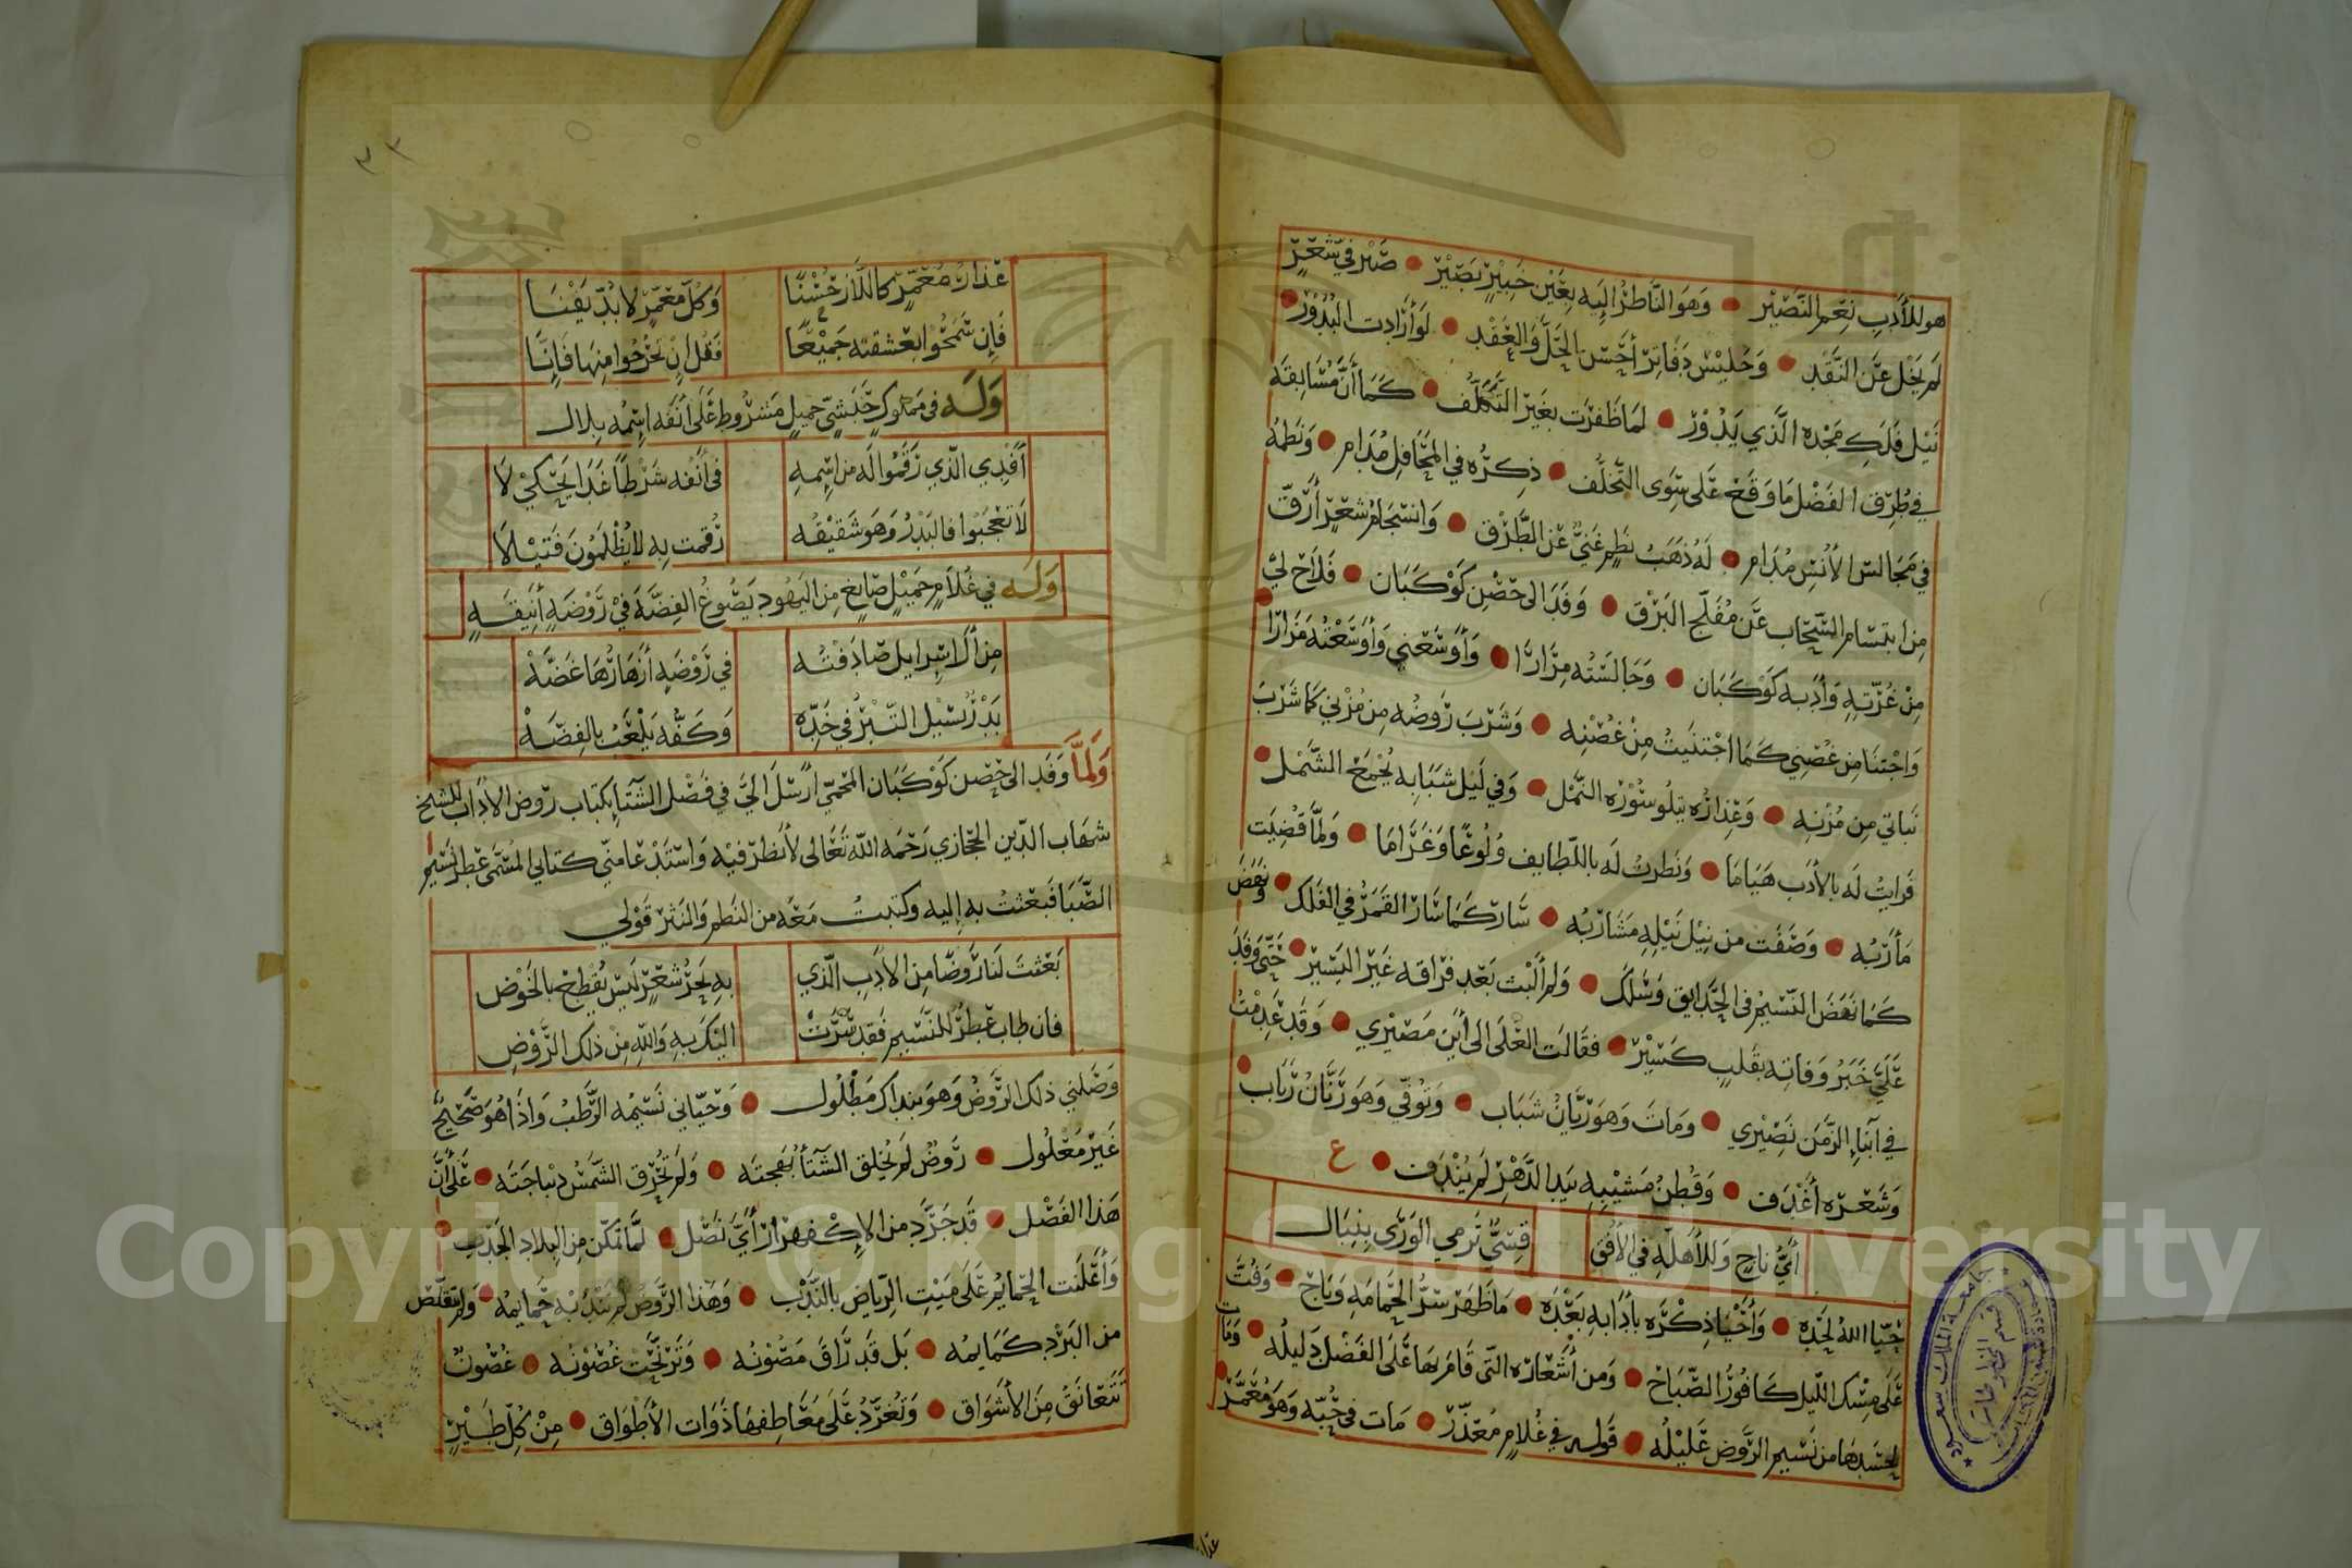 هو للأدب نعم النصير • وهو الناظر إليه بعين خبير بصير • صير في شعر
لم يخل عن النقد • وجليس دفاتر أحسن الحل والعقد • لو أرادت البدور •
نيل فلك مجده الذي يدور • لما ظفرت بغير التكلف • كما أن مسابقه
في طرق الفضل ما وقع على سوى التخلف • ذكره في المحافل مدام • ونظمه
في مجالس الأنس مدام • له ذهب نظم غني عن الطرق • وانسجام شعر أرق
من ابتسام السحاب عن مفلج البرق • وفد الى حصن كوكبان • فلاح لي •
من غرته وأدبه كوكبان • وجالسته مرارا • وأوسعني وأوسعته مزارا
واجتنا من غصني كما اجتنيت من غصنه • وشرب روضه من مزني كما شرب
نباتي من مزنه • وعذاره يتلو سورة النمل • وفي ليل شبابه يجمع الشمل •
فرايت له بالأدب هياما • ونظرت له باللطايف ولوعا وغراما • ولما قضيت
مأربه • وصفت من نيل نيله مشاربه • سار كما سار القمر في الفلك • ونهض
كما نهض النسيم في الحدايق وسلك • ولم ألبث بعد فراقه غير اليسير • حتى وفد
علي خبر وفاته بقلب كسير • فقالت العلى الى أين مصيري • وقد عدمت
في آناء الزمن نصيري • ومات وهو ريان شباب • وتوفي وهو ريان رباب •
وشعره أغدف • وقطن مشيبه بيد الدهر لم يندف • ع
أي ناج وللأهلة في الأفق قسي ترمي الورى بنبال
حيا الله لحده • وأحيا ذكره بأدابه بعده • ما ظهر سر الحمامه وباح • وفت
على مسك الليل كافور الصباح • ومن أشعاره التي قام بها على الفضل دليله • وبات
يحسدها من نسيم الروض عليله • قوله في غلام معذر • مات في حبه وهو معمر •
عذار
٢٣
عذار معمر كاللاز حسنا وكل معمر لا بد يفنا
فإن سمحوا بعشقته جميعا فقل إن تخرجوا منها فإنا
وله في مملوك حبشي جميل مشروط على أنفه اسمه بلال
أفدي الذي رقموا له من اسمه في أنفه شرطا غدا يحكي لا
لا تعجبوا فالبدر وهو شقيقه رقمت به لا يظلمون فتيلا
وله في غلام جميل صايغ من اليهود يصوغ الفضة في روضة أنيقة
من آل اسرايل صادفته في روضة أزهارها غضة
بدر يسيل التبر في خده وكفه يلعب بالفضة
ولما وفد الى حصن كوكبان المحمي ارسل الي في فصل الشتا بكتاب روض الاداب للشيخ
شهاب الدين الحجازي رحمه الله تعالى لأنظر فيه واستدعا مني كتابي المسمى عطر نسيم
الصبا فبعثت به إليه وكتبت معه من النظم والنثر قولي
بعثت لنا روضا من الادب الذي به بحر شعر ليس يقطع بالخوض
فان طاب عطر للنسيم فقد سرت اليك به والله من ذلك الروض
وصلني ذلك الروض وهو بنداك مطلول • وحياني نسيمه الرطب واذا هو صحيح
غير معلول • روض لم يخلق الشتا بهجته • ولم تحرق الشمس ديباجته • على أن
هذا الفصل • قد جرد من الإكفهرار أي نصل • لما تمكن من البلاد الجدب •
وأعلنت الحمايم على ميت الرياض بالندب • وهذا الروض لم تندب به حمايمه • ولم تتقلص
من البرد كمايمه • بل قد راق مصونه • وترنحت غصونه • غصون
تتعانق من الأشواق • وتغرد على معاطفها ذوات الأطواق • من كل طير
جامعة الملك سعود
قسم المخطوطات
Copyright © King Saud University